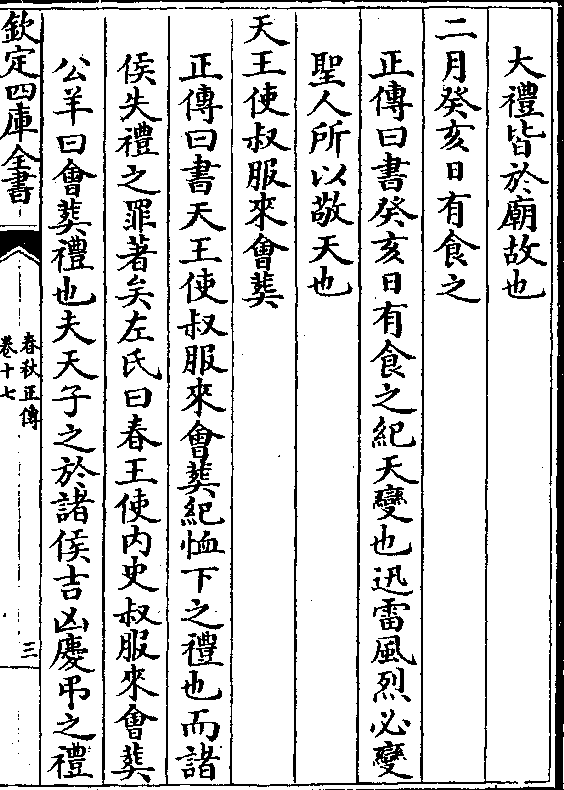 大禮皆於廟故也
二月癸亥日有食之
正傳曰書癸亥日有食之紀天變也迅雷風烈必變
聖人所以敬天也
天王使叔服來會葬
正傳曰書天王使叔服來會葬紀恤下之禮也而諸
侯失禮之罪著矣左氏曰春王使内史叔服來會葬
公羊曰會葬禮也夫天子之於諸侯吉凶慶弔之禮
欽定四庫全書
春秋正傳
卷十七
三